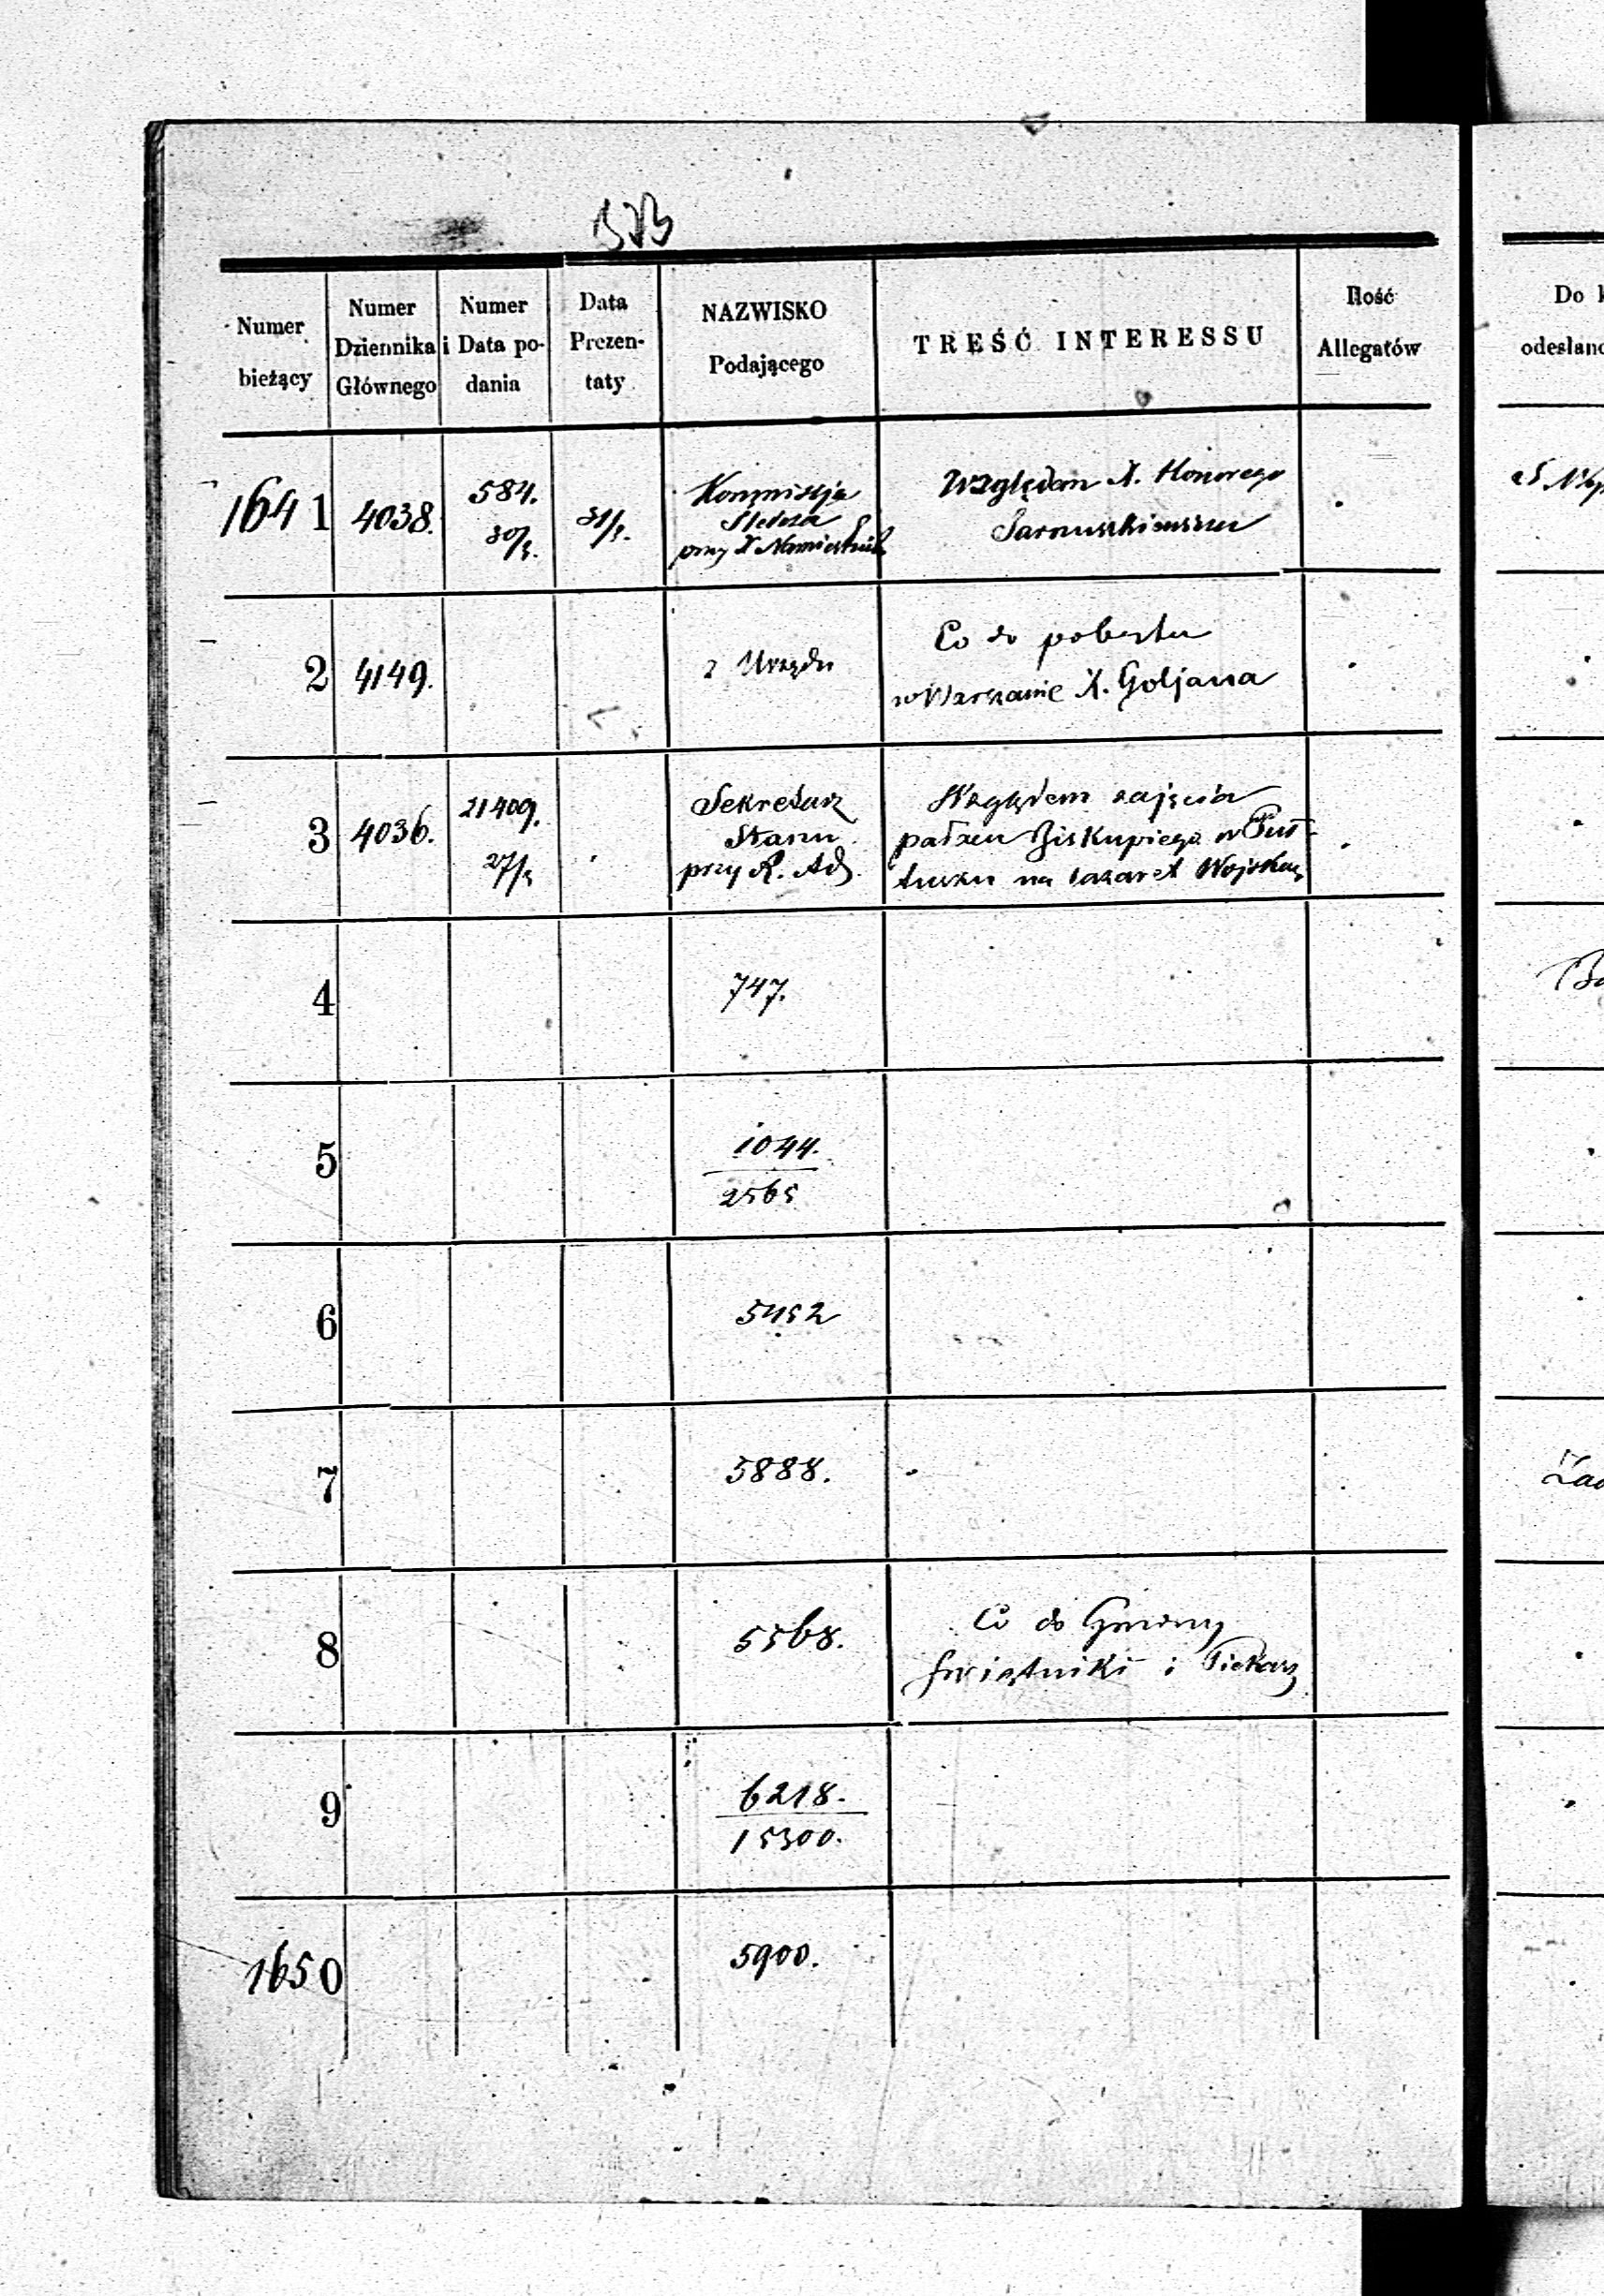 Numer bieżący
Numer Dziennika Głównego
Numer i Data podania
Data Prezentaty
NAZWISKO Podającego
TREŚĆ INTERESSU
Ilość Allegatów
Do
odesłano
1641 4038. 584. 30/5. 31/5. Kommissja Śledcza przy X Namiestniku Względem X. Honorego
2 4149. z Urzędu Co do pobytu w Warszawie X. Goljana
3 4036. 21409. 27/5 Sekretarz Stanu przy R. Ad. Względem zajęcia pałacu Biskupiego w Puł-
tusku na lazaret Wojskowy
4 747.
5 1044.
2565
6 5452
7 5888.
8 5568. Co do Gminy
Świątniki i Piekary
9 6218.
15300.
1650 5900.